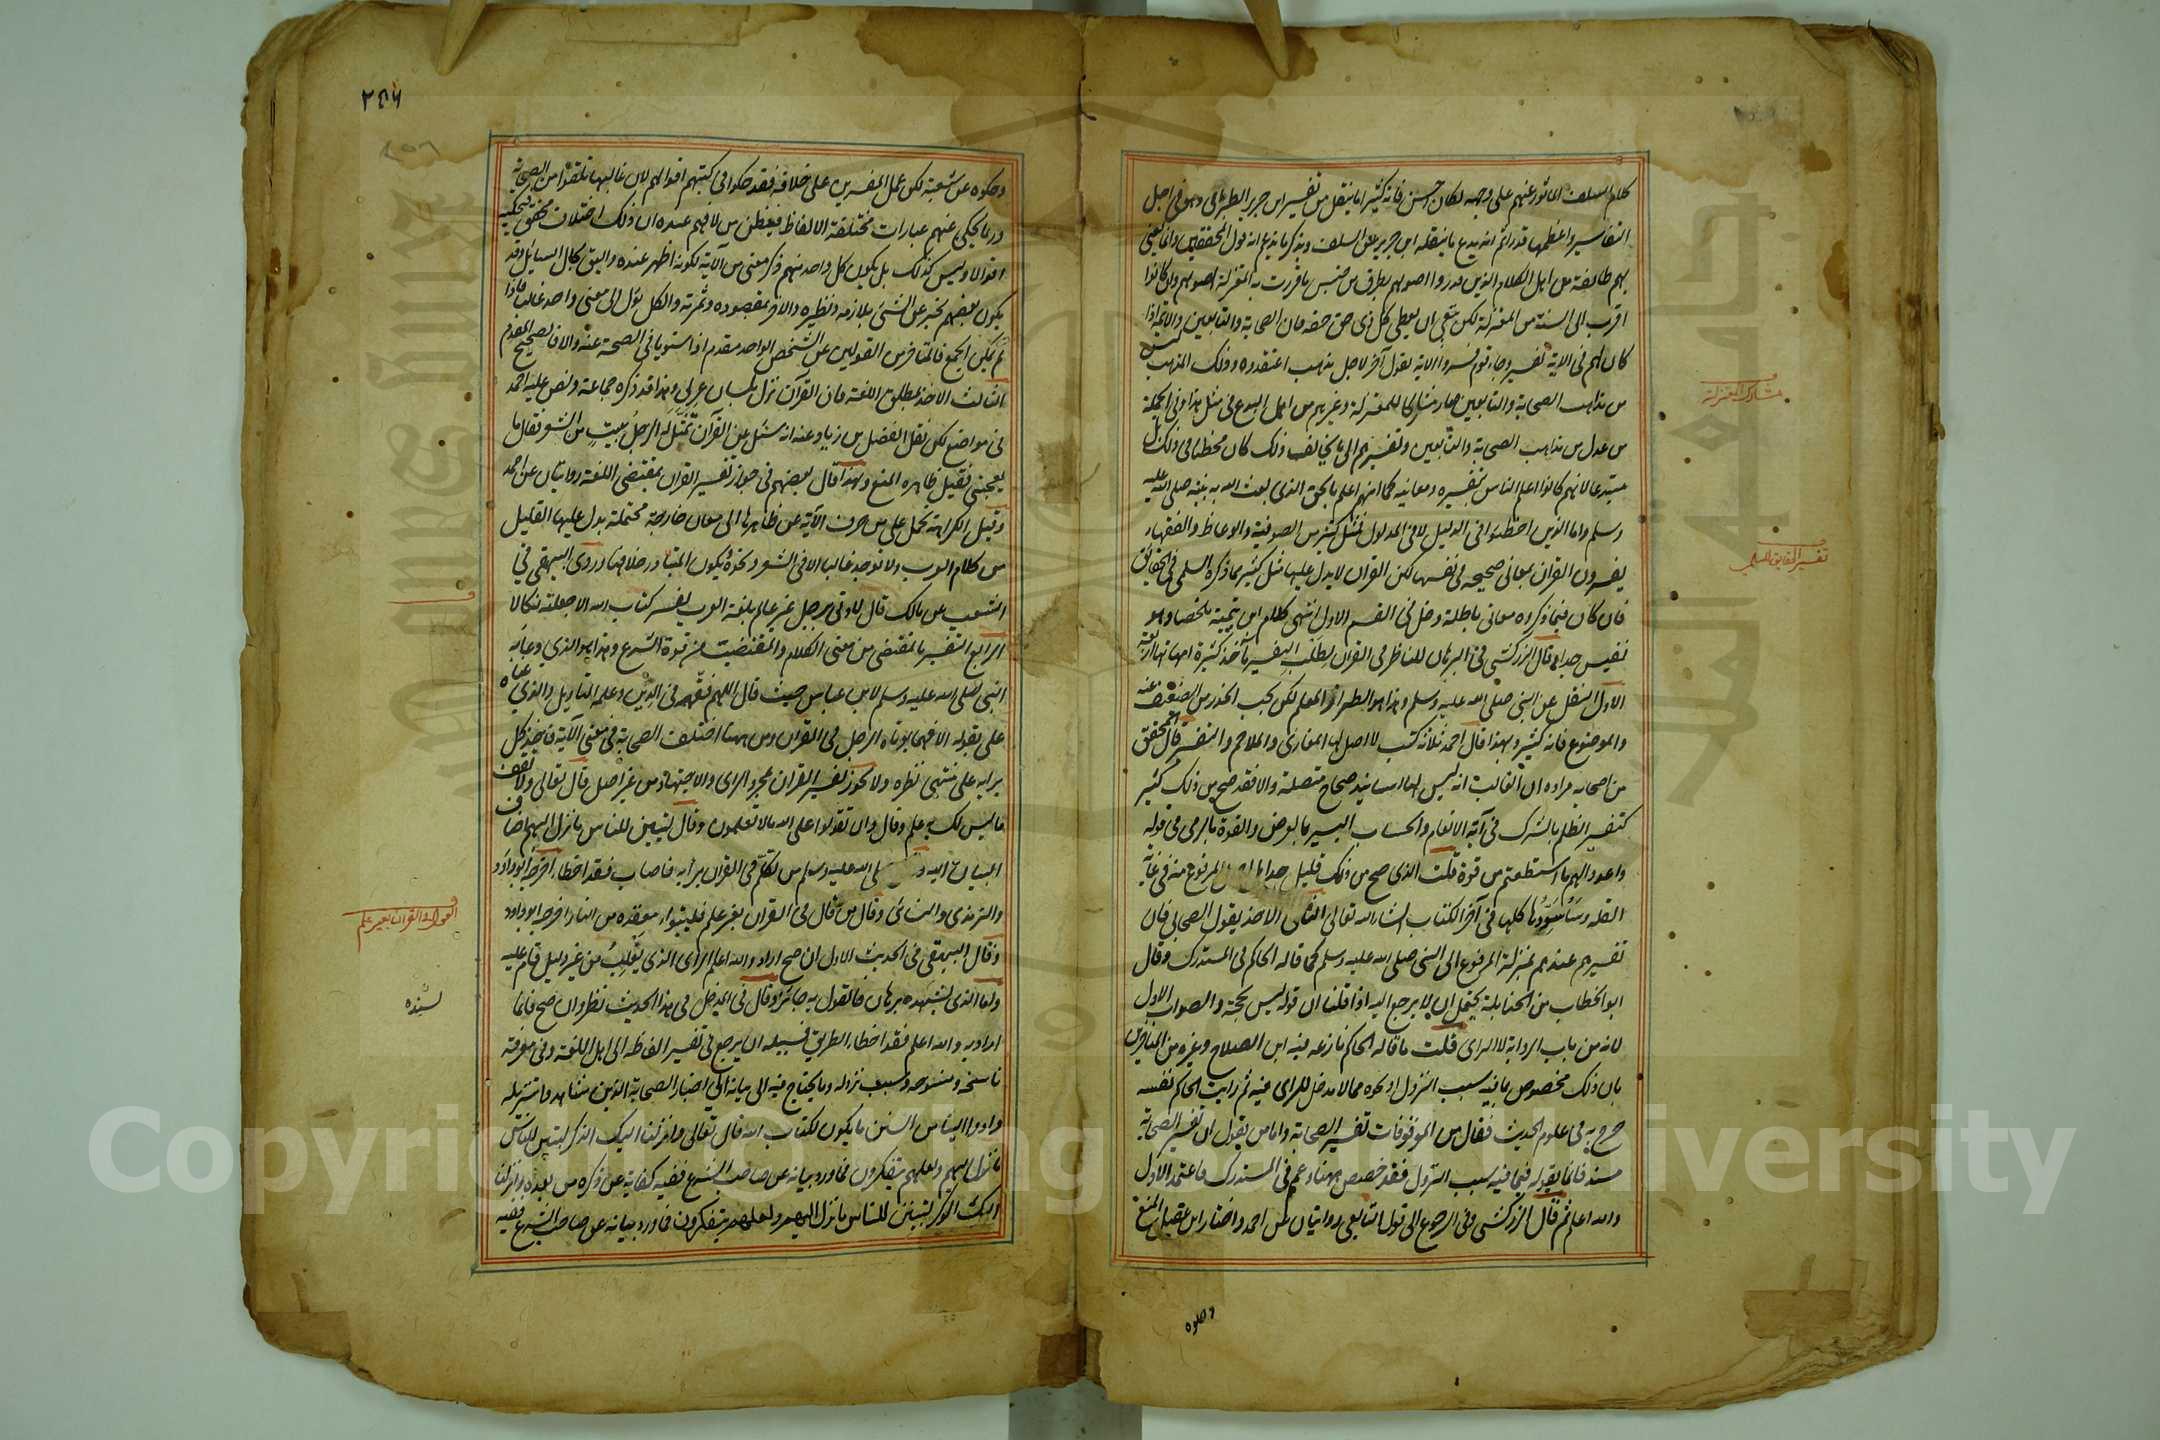 كلام السلف المأثور عنهم على وجهه لكان احسن فانه كثيرا ما ينقل من تفسير ابن جرير الطبري وهو في اجل
التفاسير واعظمها قدرا ثم انه يدع ما ينقله ابن جرير عن السلف ويذكر ما يزعم انه قول المحققين وانما يعني
بهم طائفة من اهل الكلام الذين قرروا اصولهم بطرق من جنس ما قررت به المعتزلة اصولهم وان كانوا
اقرب الى السنة من المعتزلة لكن ينبغي ان يعطى كل ذي حق حقه فان الصحابة والتابعين والائمة اذا
كان لهم في الاية تفسير وجاء قوم فسروا الاية بقول آخر لاجل مذهب اعتقدوه وذلك المذهب ليس
من مذاهب الصحابة والتابعين صار مشاركا للمعتزلة وغيرهم من اهل البدع في مثل هذا وفي الجملة
من عدل من مذاهب الصحابة والتابعين وتفسيرهم الى ما يخالف ذلك كان مخطئا في ذلك بل
مبتدعا لانهم كانوا اعلم الناس بتفسيره ومعانيه كما انهم اعلم بالحق الذي بعث الله به نبيه صلى الله عليه
وسلم واما الذين اخطئوا في الدليل لا في المدلول فمثل كثير من الصوفية والوعاظ والفقهاء
يفسرون القرآن بمعاني صحيحه في نفسها لكن القرآن لا يدل عليها مثل كثير مما ذكره السلمي في الحقائق
فان كان فيما ذكروه معاني باطلة دخل في القسم الاول انتهى كلام ابن تيمية ملخصا وهو
نفيس جدا قال الزركشي في البرهان للناظر في القرآن لطلب التفسير مآخذ كثيرة امهاتها اربعة
الاول النقل عن النبي صلى الله عليه وسلم وهذا هو الطراز المعلم لكن يجب الحذر من الضعيف منه
والموضوع فانه كثير ولهذا قال احمد ثلاثة كتب لا اصل لها المغازي والملاحم والتفسير قال المحققون
من اصحابه مراده ان الغالب انه ليس لها اسانيد صحاح متصلة والا فقد صح من ذلك كثير
كتفسير الظلم بالشرك في آية الانعام والحساب اليسير بالعرض والقوة بالرمي في قوله
واعدوا لهم ما استطعتم من قوة قلت الذي صح من ذلك قليل جدا بل اصل المرفوع منه في غاية
القلة وسأسردها كلها في آخر الكتاب انشاء الله تعالى الثاني الاخذ بقول الصحابي فان
تفسيرهم عندهم بمنزلة المرفوع الى النبي صلى الله عليه وسلم كما قاله الحاكم في المستدرك وقال
ابو الخطاب من الحنابلة يحتمل ان لا يرجع اليه اذا قلنا ان قوله ليس بحجة والصواب الاول
لانه من باب الرواية لا الراى قلت ما قاله الحاكم نازعه فيه ابن الصلاح وغيره من المتأخرين
بان ذلك مخصوص بما فيه سبب النزول او نحوه مما لا مدخل للراى فيه ثم رايت الحاكم نفسه
صرح به في علوم الحديث فقال من الموقوفات تفسير الصحابة واما من يقول ان تفسير الصحابة
مسند فانما يقوله فيما فيه سبب النزول فقد خصص ههنا وعمم في المستدرك فاعتمد الاول
والله اعلم ثم قال الزركشي وفي الرجوع الى قول التابعي روايتان عن احمد واختار ابن عقيل المنع
وحكوه
مشارك المعتزلة
تفسير الحقايق للسلمي
٢٥٦
وحكوه عن شعبة لكن عمل المفسرين على خلافه فقد حكوا في كتبهم اقوالهم لان غالبها تلقوا من الصحابة
وربما يحكى عنهم عبارات مختلفة الالفاظ فيظن من لا فهم عنده ان ذلك اختلاف محقق فيحكيه
اقوالا وليس كذلك بل يكون كل واحد منهم ذكر معنى من الآية لكونه اظهر عنده واليق بحال السايل وقد
يكون بعضهم يخبر عن الشئ بلازمه ونظيره والاخر بمقصوده وثمرته والكل يؤل الى معنى واحد غالبا فاذا
لم يمكن الجمع فالمتاخر من القولين عن الشخص الواحد مقدم اذا استويا في الصحة عنه والا فالصحيح المقدم
الثالث الاخذ بمطلق اللغة فان القرآن نزل بلسان عربي وهذا قد ذكره جماعة ونص عليه احمد
في مواضع لكن نقل الفضل بن زياد عنه انه سئل عن القرآن تمثل له الرجل ببيت من الشعر فقال ما
يعجبني فقيل ظاهره المنع ولهذا قال بعضهم في جواز تفسير القرآن بمقتضى اللغة روايتان عن احمد
وقيل الكراهة تحمل على من صرف الآية عن ظاهرها الى معان خارجة محتملة يدل عليها القليل
من كلام العرب ولا توجد غالبا الا في الشعر ونحوه ويكون المتبادر خلافها وروى البيهقي في
الشعب عن مالك قال لا اوتى برجل غير عالم بلغة العرب يفسر كتاب الله الا جعلته نكالا
الرابع التفسير بالمقتضى من معنى الكلام والمقتضب من قوة الشرع وهذا هو الذي دعا به
النبي صلى الله عليه وسلم لابن عباس حيث قال اللهم فقهه في الدين وعلمه التاويل والذي عناه
علي بقوله الا فهما يؤتاه الرجل في القرآن ومن ههنا اختلف الصحابة في معنى الآية فاخذ كل
برايه على منتهى نظره ولا يجوز تفسير القرآن بمجرد الراى والاجتهاد من غير اصل قال تعالى ولا تقف
ما ليس لك به علم وقال وان تقولوا على الله ما لا تعلمون وقال لتبين للناس ما نزل اليهم اضاف
البيان اليه صلى الله عليه وسلم من تكلم في القرآن برأيه فاصاب فقد اخطا اخرجه ابوداود
والترمذي والنسائي وقال من قال في القرآن بغير علم فليتبوأ مقعده من النار اخرجه ابوداود
وقال البيهقي في الحديث الاول ان صح اراد والله اعلم الراى الذي يغلب من غير دليل قام عليه
واما الذي يشهده برهان فالقول به جائز وقال في المدخل في هذا الحديث نظر وان صح فانما
اراد به والله اعلم فقد اخطا الطريق فسبيله ان يرجع في تفسير الفاظه الى اهل اللغة وفي معرفة
ناسخه ومنسوخه وسبب نزوله وما يحتاج فيه الى بيانه الى اخبار الصحابة الذين شاهدوا تنزيله
وادوا الينا من السنن ما يكون لكتاب الله قال تعالى وانزلنا اليك الذكر لتبين للناس
ما نزل اليهم ولعلهم يتفكرون فما ورد بيانه عن صاحب الشرع ففيه كفاية عن ذكره من بعده وانزلنا
اليك الذكر لتبين للناس ما نزل اليهم ولعلهم يتفكرون فما ورد بيانه عن صاحب الشرع ففيه
القول في القرآن بغير علم
يشده
Copyright © King Saud University